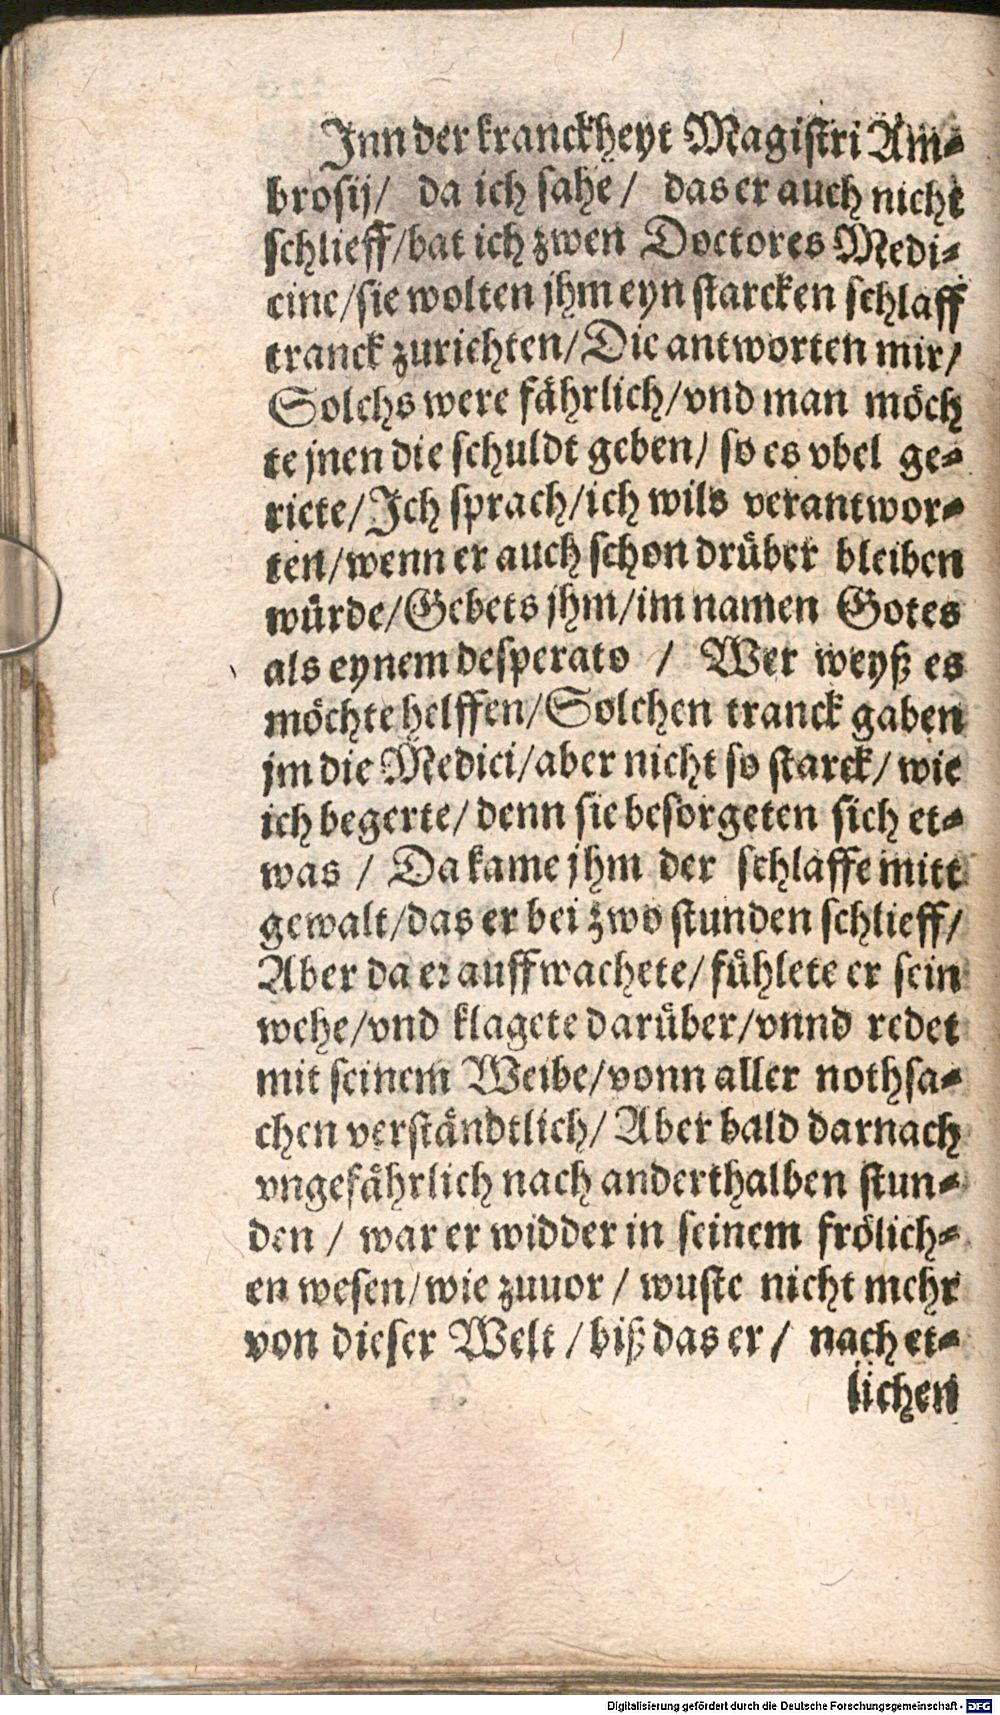 Inn der kranckheyt Magistri Am⸗
brosij/ da ich sahe/ das er auch nicht
schlieff/bat ich zwen Doctores Medi⸗
cine/sie wolten jhm eyn starcken schlaff
tranck zurichten/Die antworten mir/
Solchs were fährlich/vnd man möch
te jnen die schuldt geben/ so es vbel ge⸗
riete/Ich sprach/ich wils verantwor⸗
ten/wenn er auch schon drüber bleiben
würde/Gebets jhm/im namen Gotes
als eynem desperato / Wer weyß es
möchte helffen/Solchen tranck gaben
jm die Medici/aber nicht so starck/ wie
ich begerte/ denn sie besorgeten sich et⸗
was / Da kame jhm der schlaffe mitt
gewalt/das er bei zwo stunden schlieff/
Aber da er auffwachete/fühlete er sein
wehe/vnd klagete darüber/vnnd redet
mit seinem Weibe/vonn aller nothsa⸗
chen verständtlich/ Aber bald darnach
vngefährlich nach anderthalben stun⸗
den / war er widder in seinem frölich⸗
en wesen/wie zuuor / wuste nicht mehr
von dieser Welt /biß das er/ nach et⸗
lichen
Digitalisierung gefördert durch die Deutsche Forschungsgemeinschaft - DFG